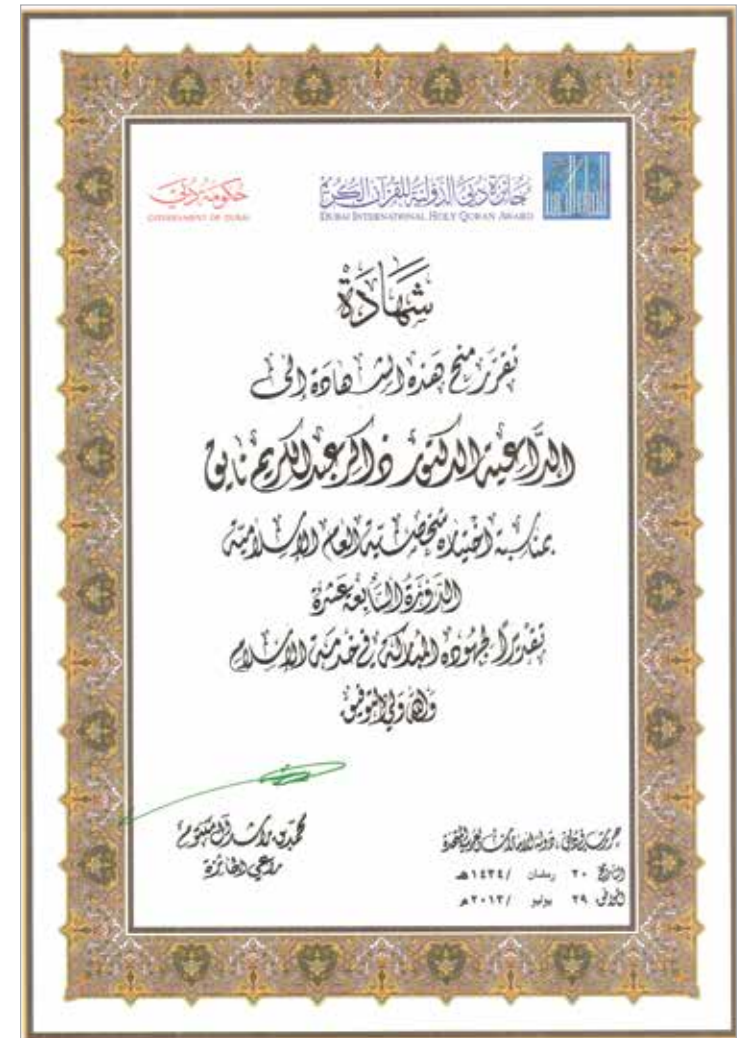 حكومة دبي
GOVERNMENT OF DUBAI
جائزة دبي الدولية للقرآن الكريم
DUBAI INTERNATIONAL HOLY QURAN AWARD
شَهَادَةْ
تقرر منح هذه الشهادة إلى
الداعية الدكتور ذاكر عبدالكريم نايق
بمناسبة اختياره شخصية العام الإسلامية
الدورة السابعة عشرة
تقديراً لجهوده المباركة في خدمة الإسلام
والله ولي التوفيق
محمد بن راشد آل مكتوم
راعي الجائزة
حررت في دبي، دولة الامارات العربية المتحدة
التاريخ ٢٠ رمضان /١٤٣٤هـ
الموافق ٢٩ يوليو /٢٠١٣م